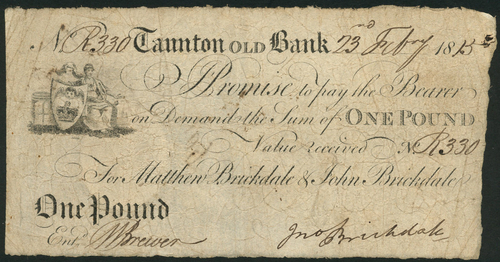 N R330 Taunton Old Bank 23rd Febry 1815
I Promise to pay the Bearer
on Demand the Sum of ONE POUND
Value received N R330
For Matthew Brickdale & John Brickdale
One Pound
Entd. W Brewer Jno Brickdale